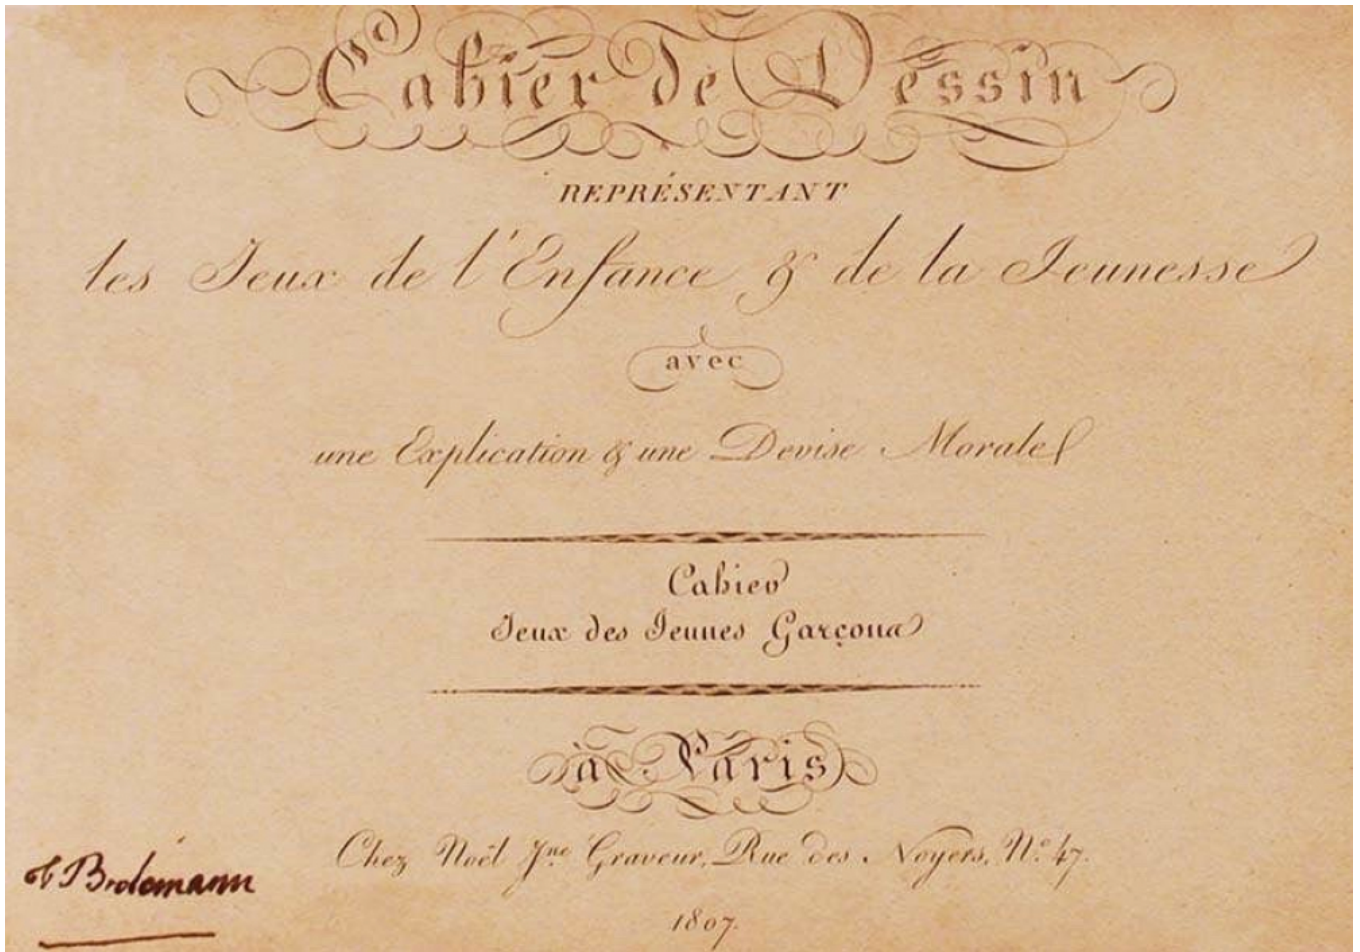 Cahier de Dessin
REPRÉSENTANT
les Jeux de l'Enfance & de la Jeunesse
avec
une Explication & une Devise Morale
Cahier
Jeux des Jeunes Garçons
à Paris
Chez Noël Jne Graveur, Rue des Noyers, No. 47.
1807.
Brölemann